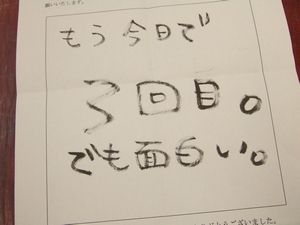 願いいたします。
もう今日で
3回目。
でも面白い。
とうございました。